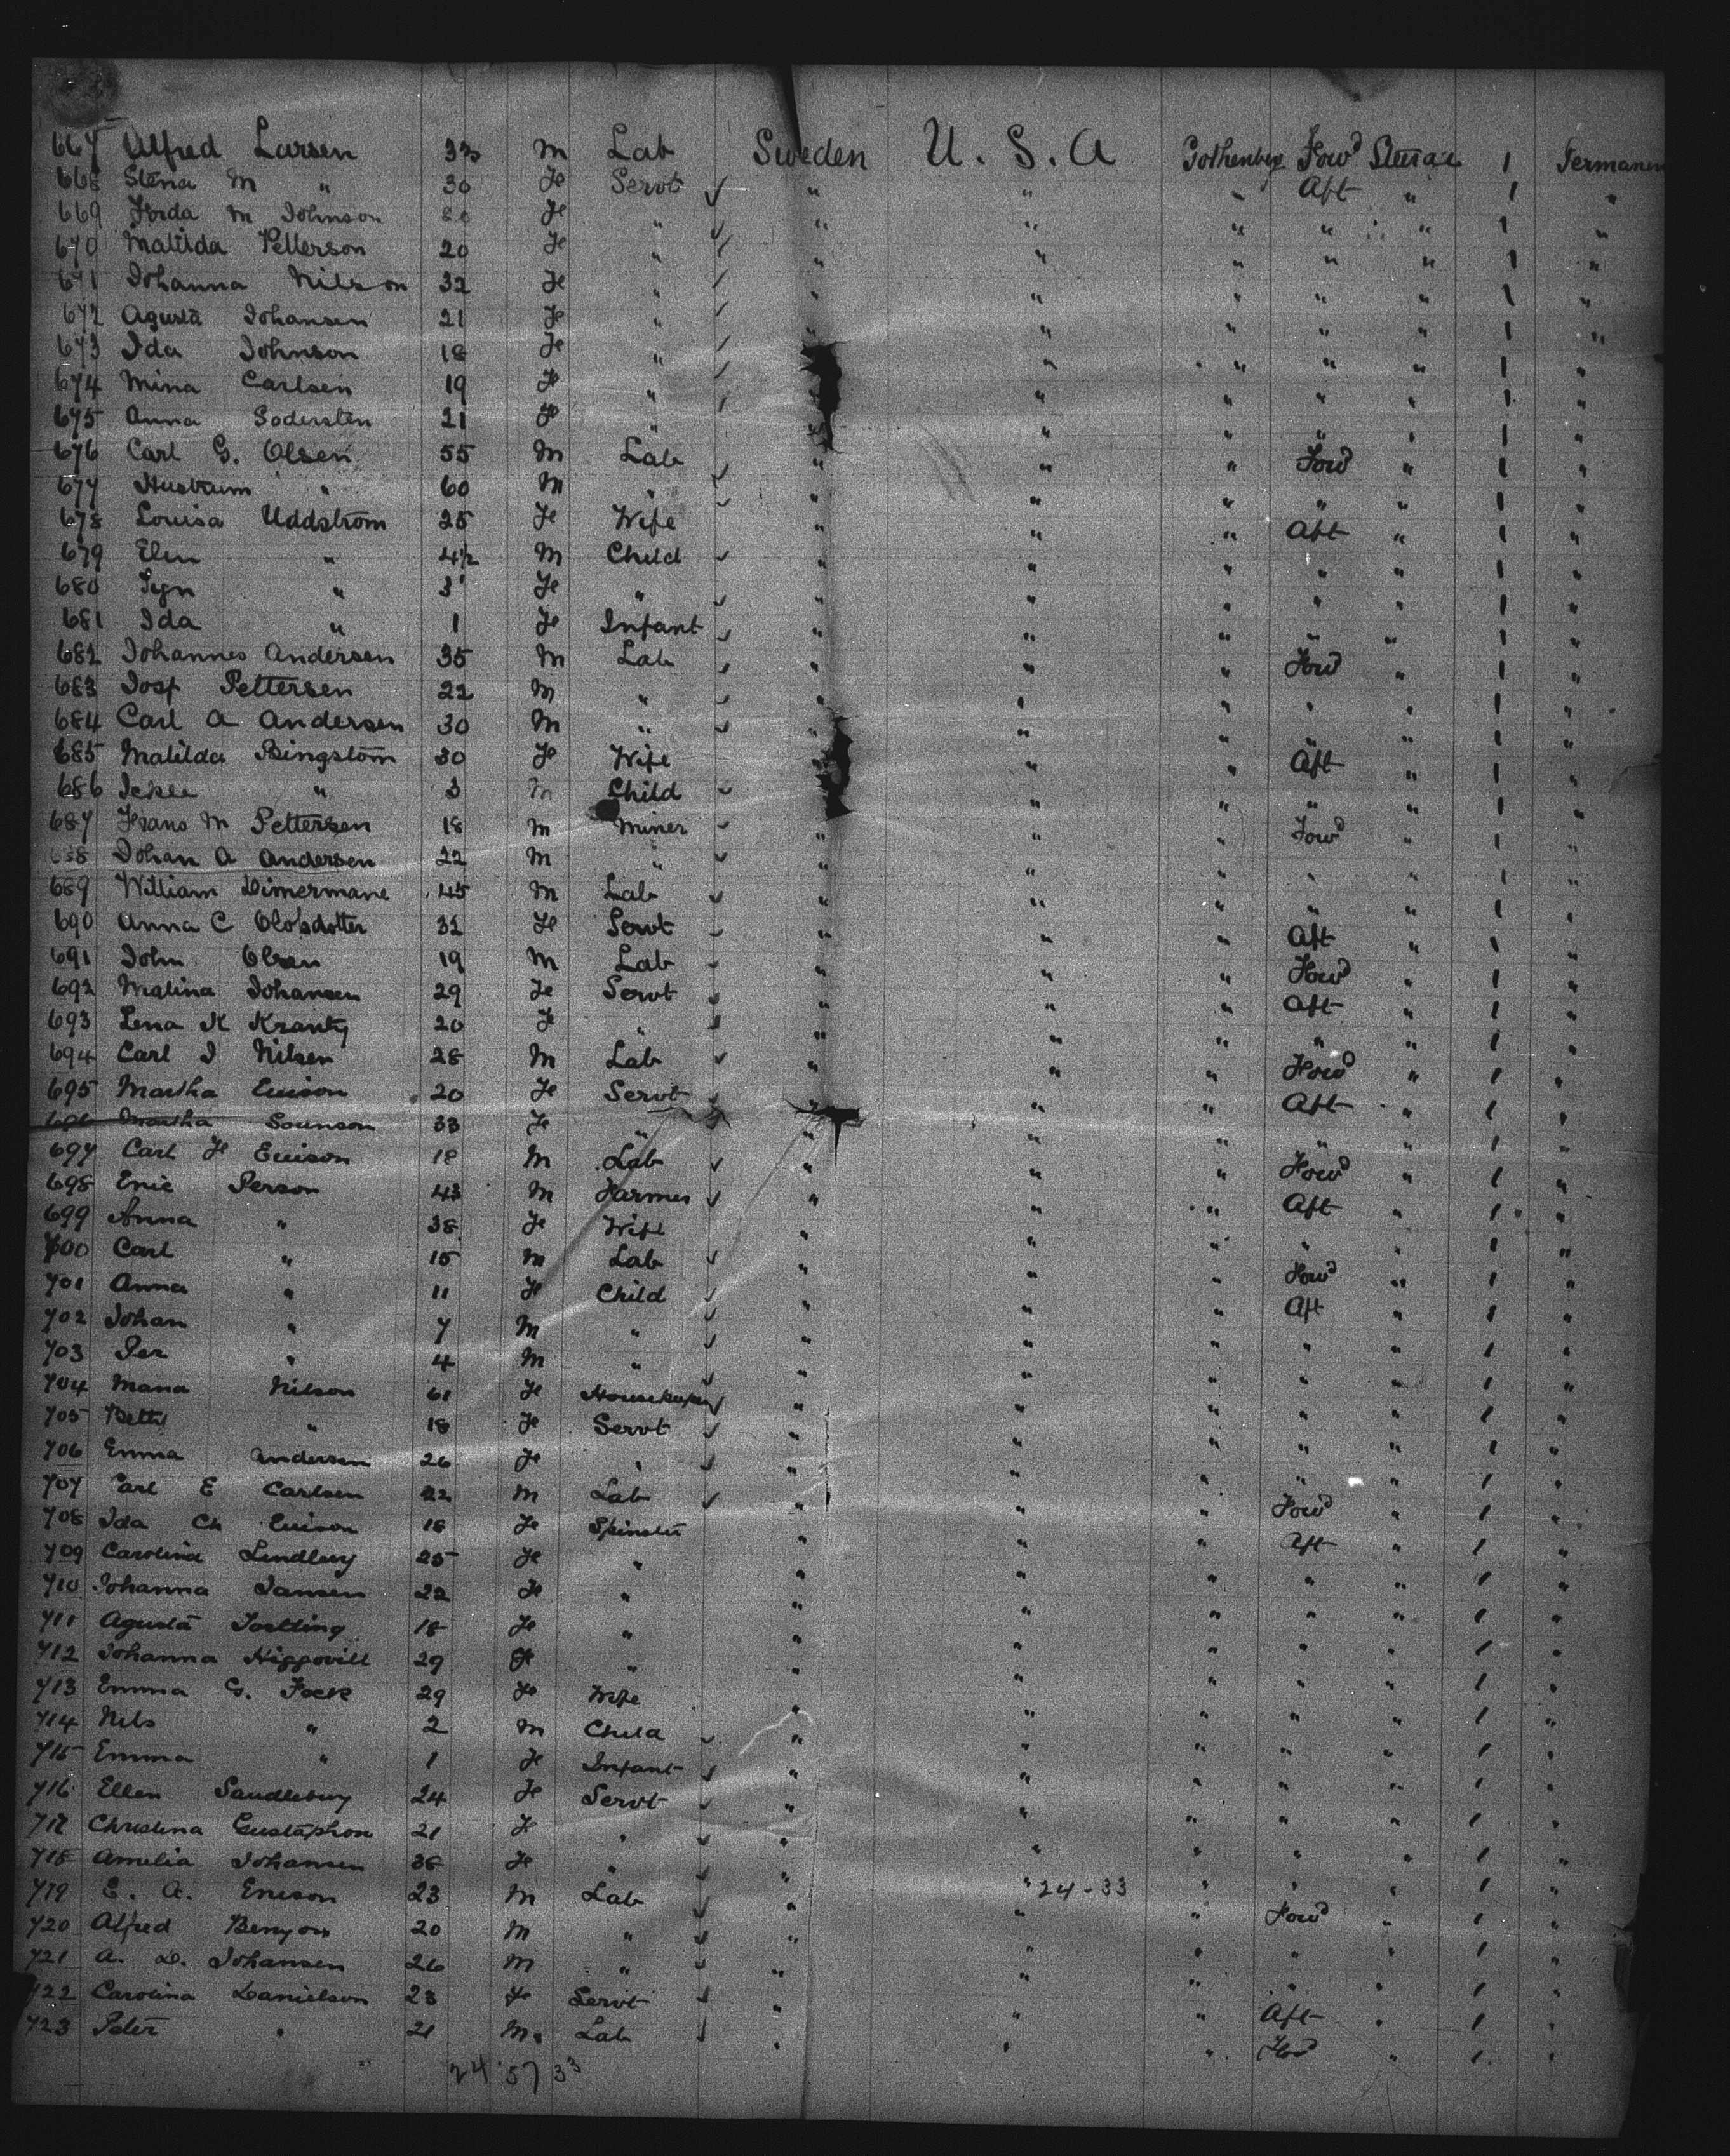 667 Alfred Larsen 33 M Lab Sweden U. S. A Gothenburg Fowd Steerage 1 Permanen
668 Stena M " 30 Fe Servt ✓ " " " Aft " 1 "
669 M Johnson Fe " ✓ " " " " " 1 "
670 Matilda Petterson 20 Fe " ✓ " " " " " 1 "
671 Johanna Nilson 32 Fe " ✓ " " " " " 1 "
672 Agusta Johansen 21 Fe " ✓ " " " " " 1 "
673 Ida Johnson 18 Fe " ✓ " " " " 1 "
674 Mina Carlsen 19 Fe " ✓ " " " " 1 "
675 Anna Sodersten 21 Fe " " " " " " 1 "
676 Carl G. Olsen 55 M Lab ✓ " " " Fowd " 1 "
677 " 60 M " ✓ " " " " " 1 "
678 Louisa Uddstrom 25 Fe Wife " " " Aft " 1 "
679 Elin " 4½ M Child ✓ " " " " " 1 "
680 Sign " 3 Fe " ✓ " " " " " 1 "
681 Ida " 1 Fe Infant ✓ " " " " " 1 "
682 Johannes Andersen 35 M Lab ✓ " " " Fowd " 1 "
683 Josf Pettersen 22 M " ✓ " " " " " 1 "
684 Carl A Andersen 30 M " ✓ " " " " " 1 "
685 Matilda Bingstom 30 Fe Wife " " Aft " 1 "
686 " 3 M Child ✓ " " " " 1 "
687 Frans M Pettersen 18 M Miner ✓ " " " Fowd " 1 "
688 Johan A Andersen 22 M " ✓ " " " " " 1 "
689 William Dimermane 45 M Lab ✓ " " " " " 1 "
690 Anna C Olofsdotter 32 Fe Servt ✓ " " " Aft " 1 "
691 John Olsen 19 M Lab ✓ " " " Fowd " 1 "
692 Malina Johansen 29 Fe Servt ✓ " " " Aft " 1 "
693 Lena K Krantz 20 Fe " ✓ " " " " " 1 "
694 Carl J Nilsen 28 M Lab ✓ " " " Fowd " 1 "
695 Martha Ericson 20 Fe Servt ✓ " " " Aft " 1 "
696 Martha 33 Fe " " " " " " 1 "
697 Carl F Ericson 18 M Lab ✓ " " " Fowd " 1 "
698 Eric Person 43 M Farmer ✓ " " " Aft " 1 "
699 Anna " 38 Fe Wife " " " " " 1 "
700 Carl " 15 M Lab ✓ " " " Fowd " 1 "
701 Anna " 11 Fe Child ✓ " " " Aft " 1 "
702 Johan " 7 M " ✓ " " " " " 1 "
703 Per " 4 M " ✓ " " " " " 1 "
704 Maria Nilson 61 Fe Housekeeper ✓ " " " " " 1 "
705 Betty " 18 Fe Servt ✓ " " " " " 1 "
706 Emma Andersen 26 Fe " ✓ " " " " " 1 "
707 Carl E Carlsen 22 M Lab ✓ " " " Fowd " 1 "
708 Ida Ch Ericson 18 Fe Spinster " " " Aft " 1 "
709 Carolina Lindberg 25 Fe " " " " " " 1 "
710 Johanna Jansen 22 Fe " " " " " " 1 "
711 Agusta 18 Fe " " " " " " 1 "
712 Johanna 29 Fe " " " " " " 1 "
713 Emma G. Fock 29 Fe Wife " " " " " 1 "
714 Nils " 2 M Child ✓ " " " " " 1 "
715 Emma " 1 Fe Infant ✓ " " " " " 1 "
716 Ellen Sandleburg 24 Fe Servt ✓ " " " " " 1 "
717 Christina Gustafson 21 Fe " ✓ " " " " " 1 "
718 Amelia Johansen 38 Fe " ✓ " " " " " 1 "
719 E. A. Ericson 23 M Lab ✓ " " 24-33 " Fowd " 1 "
720 Alfred Benyon 20 M " ✓ " " " " " 1 "
721 A. D. Johansen 26 M " ✓ " " " " " 1 "
722 Carolina Danielson 23 Fe Servt ✓ " " " Aft " 1 "
723 Peter " 21 M Lab ✓ " " " Fowd " 1 "
24 57 33